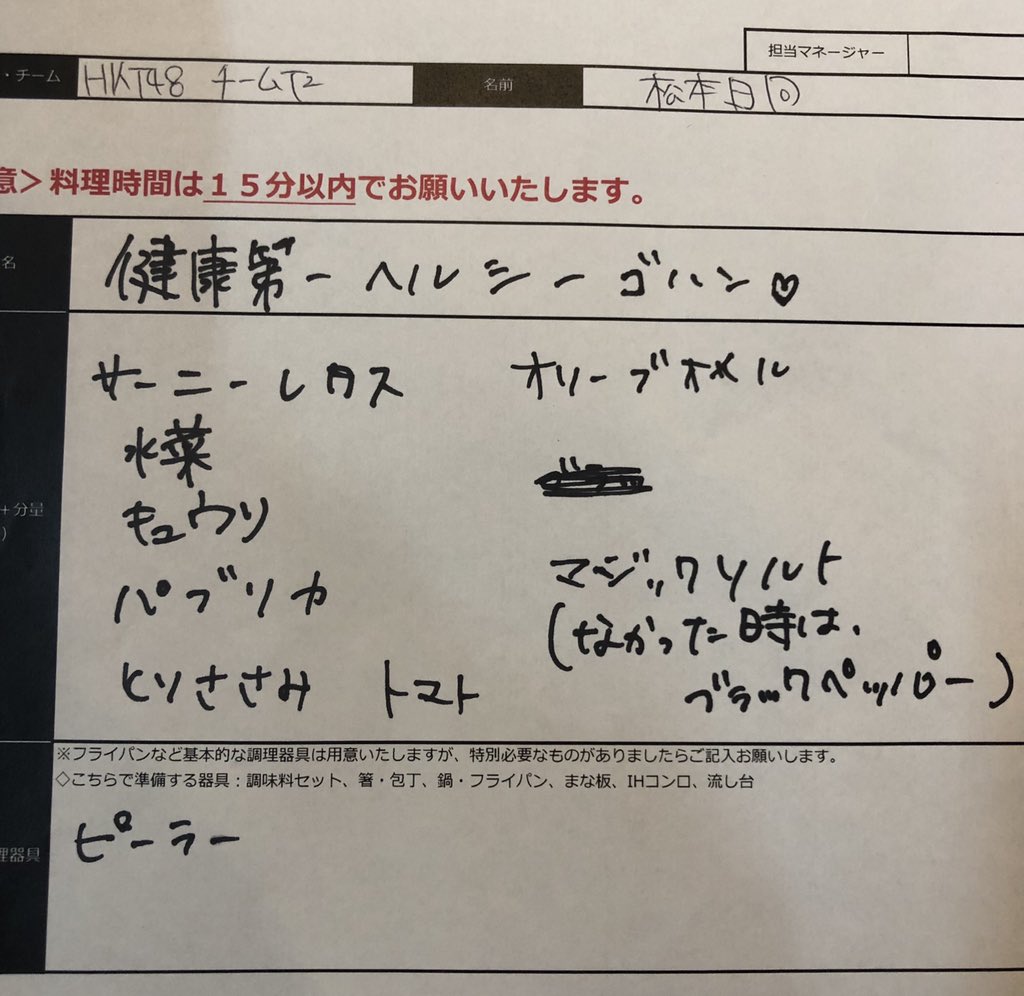 担当マネージャー
・チーム HKT48 チームTⅡ 名前 松本日向
意＞料理時間は１５分以内でお願いいたします。
名 健康第一ヘルシーゴハン♡
サーニーレタス オリーブオイル
水菜
＋分量
)
キュウリ
マジックソルト
パプリカ
(なかった時は、
とりささみ トマト ブラックペッパー)
※フライパンなど基本的な調理器具は用意いたしますが、特別必要なものがありましたらご記入お願いします。
◇こちらで準備する器具：調味料セット、箸・包丁、鍋・フライパン、まな板、IHコンロ、流し台
理器具 ピーラー